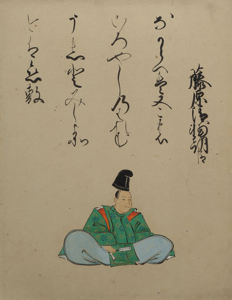 藤原清輔朝臣
なからへは又この
ころやしのはれむ
うしとみしよそ
いまは恋敷